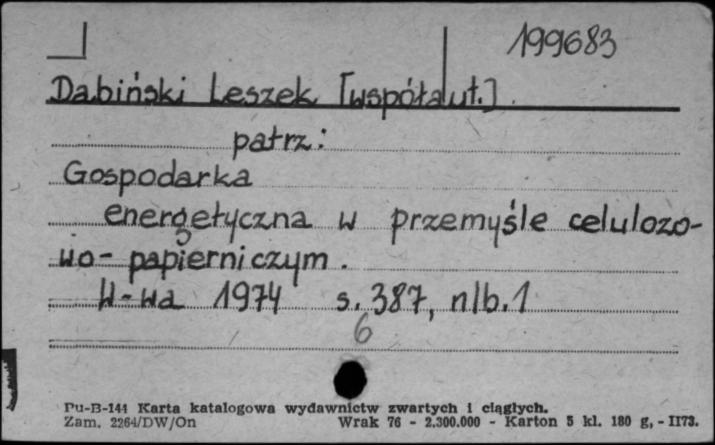 199683
Dabiński Leszek [współaut.]
patrz:
Gospodarka
energetyczna w przemyśle celulozo-
wo-papierniczym.
W-wa 1974 s. 387, nlb. 1
6
Pu-B-144 Karta katalogowa wydawnictw zwartych i ciągłych.
Zam. 2264/DW/On Wrak 76 - 2.300.000 - Karton 5 kl. 180 g, - II73.